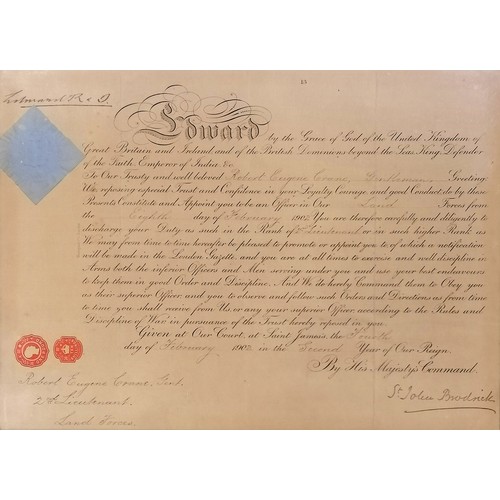 Edward R & I
Edward by the Grace of God of the United Kingdom of
Great Britain and Ireland and of the British Dominions beyond the Seas King, Defender
of the Faith Emperor of India &c
To Our Trusty and well beloved Robert Eugene Gentleman Greeting
We, reposing especial Trust and Confidence in your Loyalty Courage, and good Conduct, do by these
Presents Constitute and Appoint you to be an Officer in Our Land Forces from
the Eighth day of February 1902. You are therefore carefully and diligently to
discharge your Duty as such in the Rank of 2nd Lieutenant or in such higher Rank as
We may from time to time hereafter be pleased to promote or appoint you to, of which a notification
will be made in the London Gazette, and you are at all times to exercise and well discipline in
Arms both the inferior Officers and Men serving under you and use your best endeavours
to keep them in good Order and Discipline. And We do hereby Command them to Obey you
as their superior Officer and you to observe and follow such Orders and Directions as from time
to time you shall receive from Us, or any your superior Officer according to the Rules and
Discipline of War in pursuance of the Trust hereby reposed in you.
Given at Our Court, at Saint James's, the Fourth
day of February 1902 in the Second Year of Our Reign.
By His Majesty's Command.
Robert Eugene Gent.
2nd Lieutenant.
Land Forces.
St John Brodrick